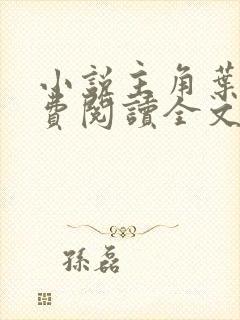 小說主角葉
費閱讀全文
孫磊